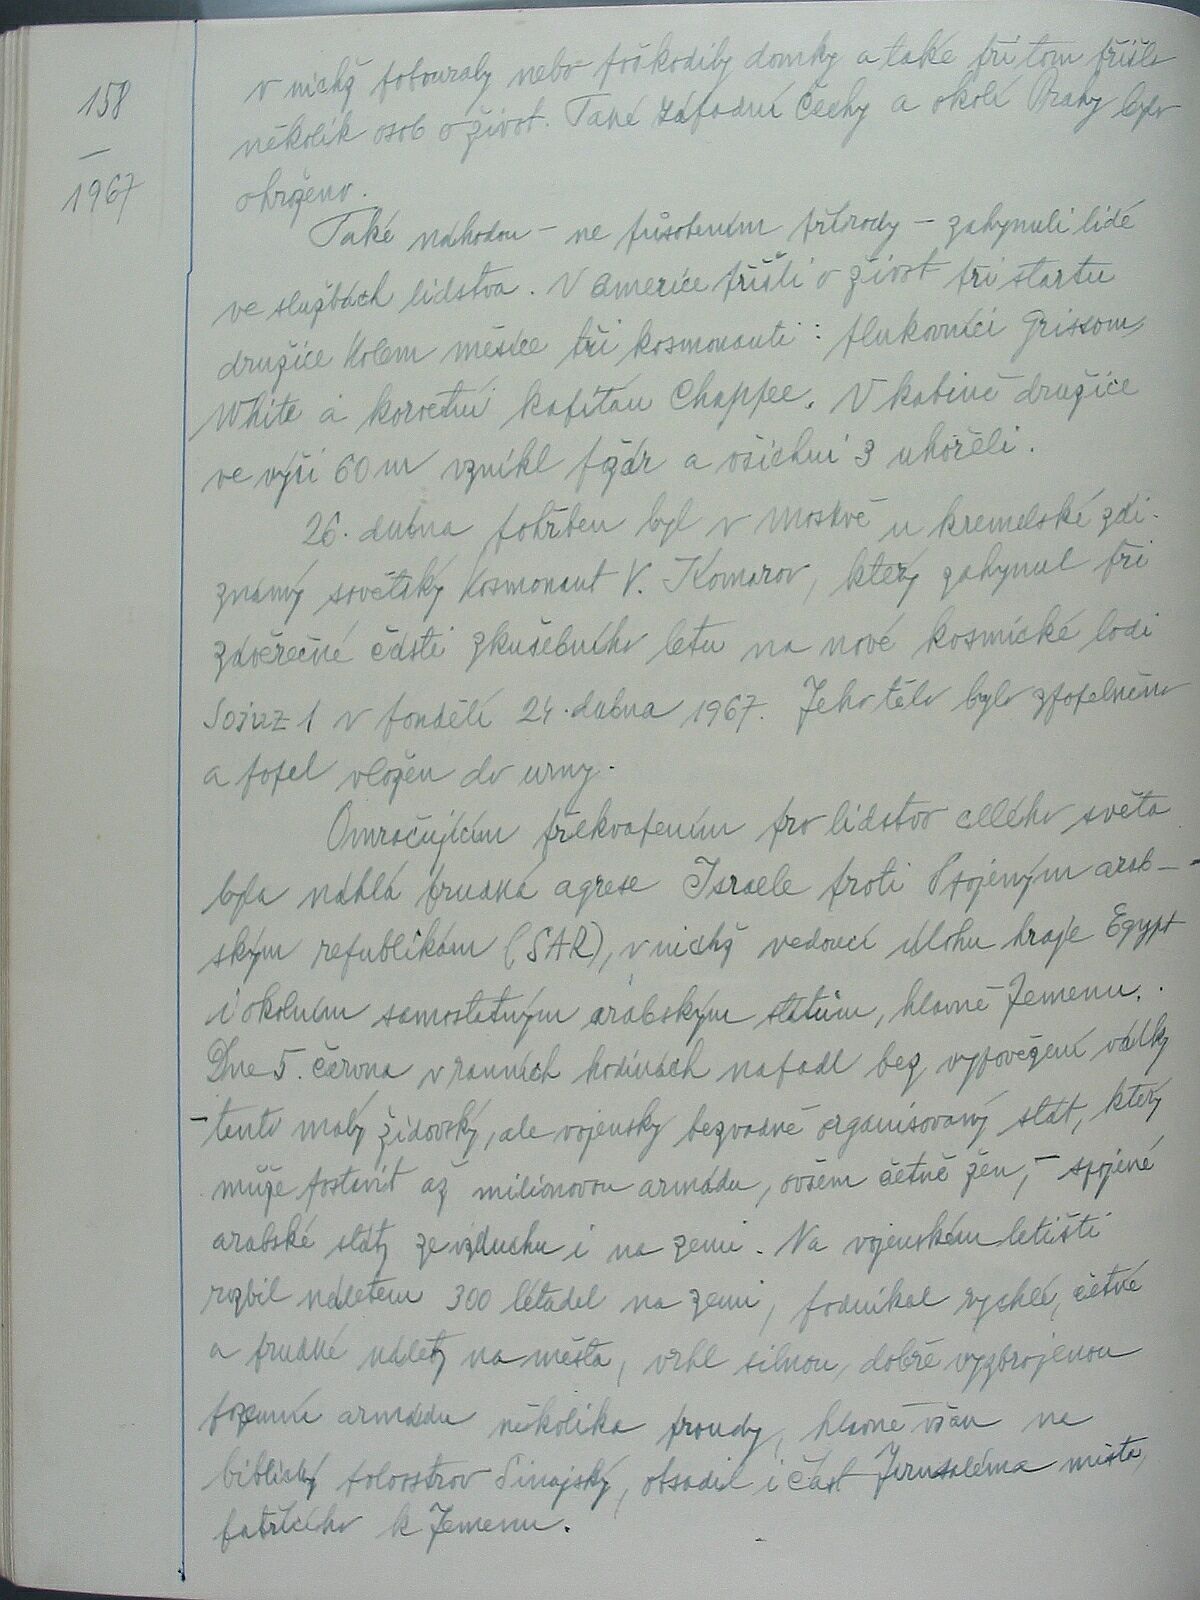 158
—
1967
v nichž pobouraly nebo poškodily domky a také při tom přišlo
několik osob o život. Také západní Čechy a okolí Prahy bylo
ohroženo.
Také náhodou – ne působením přírody – zahynuli lidé
ve službách lidstva. V Americe přišli o život při startu
družice kolem měsíce tři kosmonauti: plukovníci Grissom,
White a korvetní kapitán Chaffee. V kabině družice
ve výši 60 m vznikl požár a všichni 3 uhořeli.
26. dubna pohřben byl v Moskvě u kremelské zdi
známý sovětský kosmonaut V. Komarov, který zahynul při
závěrečné části zkušebního letu na nové kosmické lodi
Sojuz 1 v pondělí 24. dubna 1967. Jeho tělo bylo zpopelněno
a popel vložen do urny.
Omračujícím překvapením pro lidstvo celého světa
byla náhlá prudká agrese Israele proti Spojeným arab-
ským republikám (SAR), v nichž vedoucí úlohu hraje Egypt
i okolním samostatným arabským státům, hlavně Jemenu.
Dne 5. června v ranních hodinách napadl bez vypovězení války
– tento malý židovský, ale vojensky bezvadně organisovaný stát, který
může postavit až milionovou armádu, ovšem četně žen, – spojené
arabské státy ze vzduchu i na zemi. Na vojenském letišti
rozbil náletem 300 letadel na zemi, podnikal rychlé, četné
a prudké nálety na města, vrhl silnou, dobře vyzbrojenou
pozemní armádu několika proudy, hlavně však na
biblický poloostrov Sinajský, obsadil i část Jerusaléma města
patřícího k Jemenu.